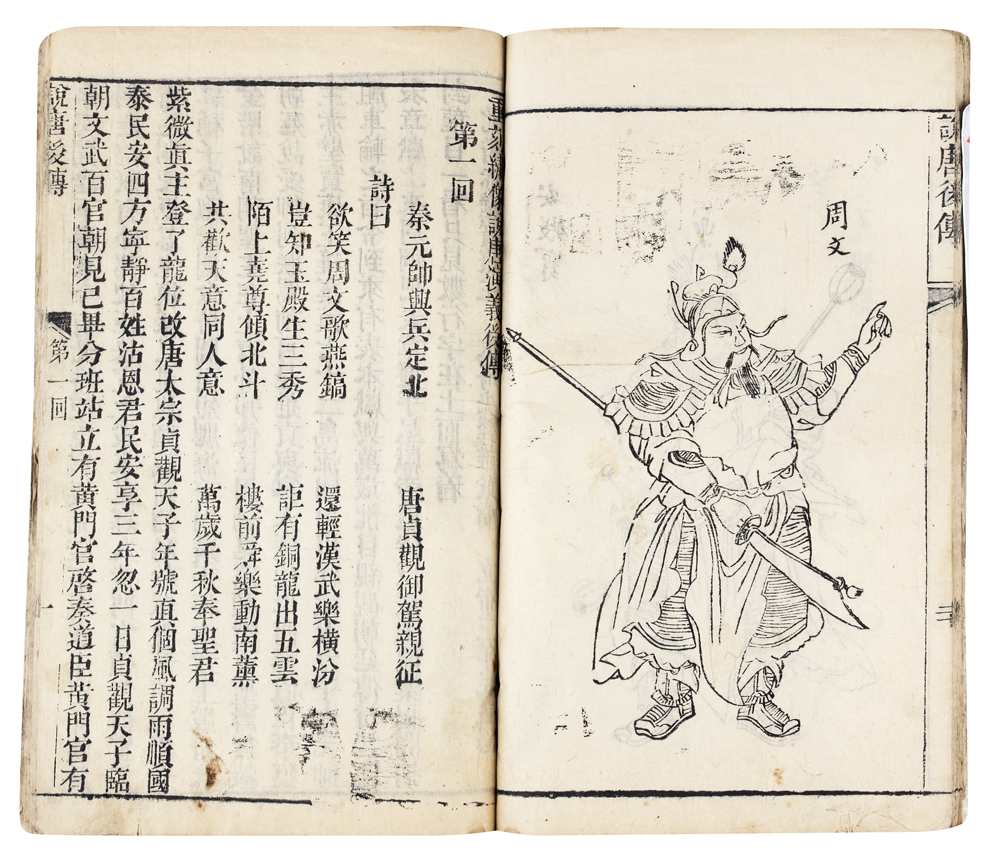 說唐後傳
周文
重刻繡像說唐演義後傳
第一回
秦元帥興兵定北　唐貞觀御駕親征
詩曰
欲笑周文歌燕鎬　還輕漢武樂橫汾
豈知玉殿生三秀　詎有銅龍出五雲
陌上堯尊傾北斗　樓前舜樂動南薰
共歡天意同人意　萬歲千秋奉聖君
紫微眞主登了龍位改唐太宗貞觀天子年號真個風調雨順國
泰民安四方寧靜百姓沾恩君民安享三年忽一日貞觀天子臨
朝文武百官朝見已畢分班站立有黃門官啓奏道臣黃門官有
說唐後傳　第一回　一